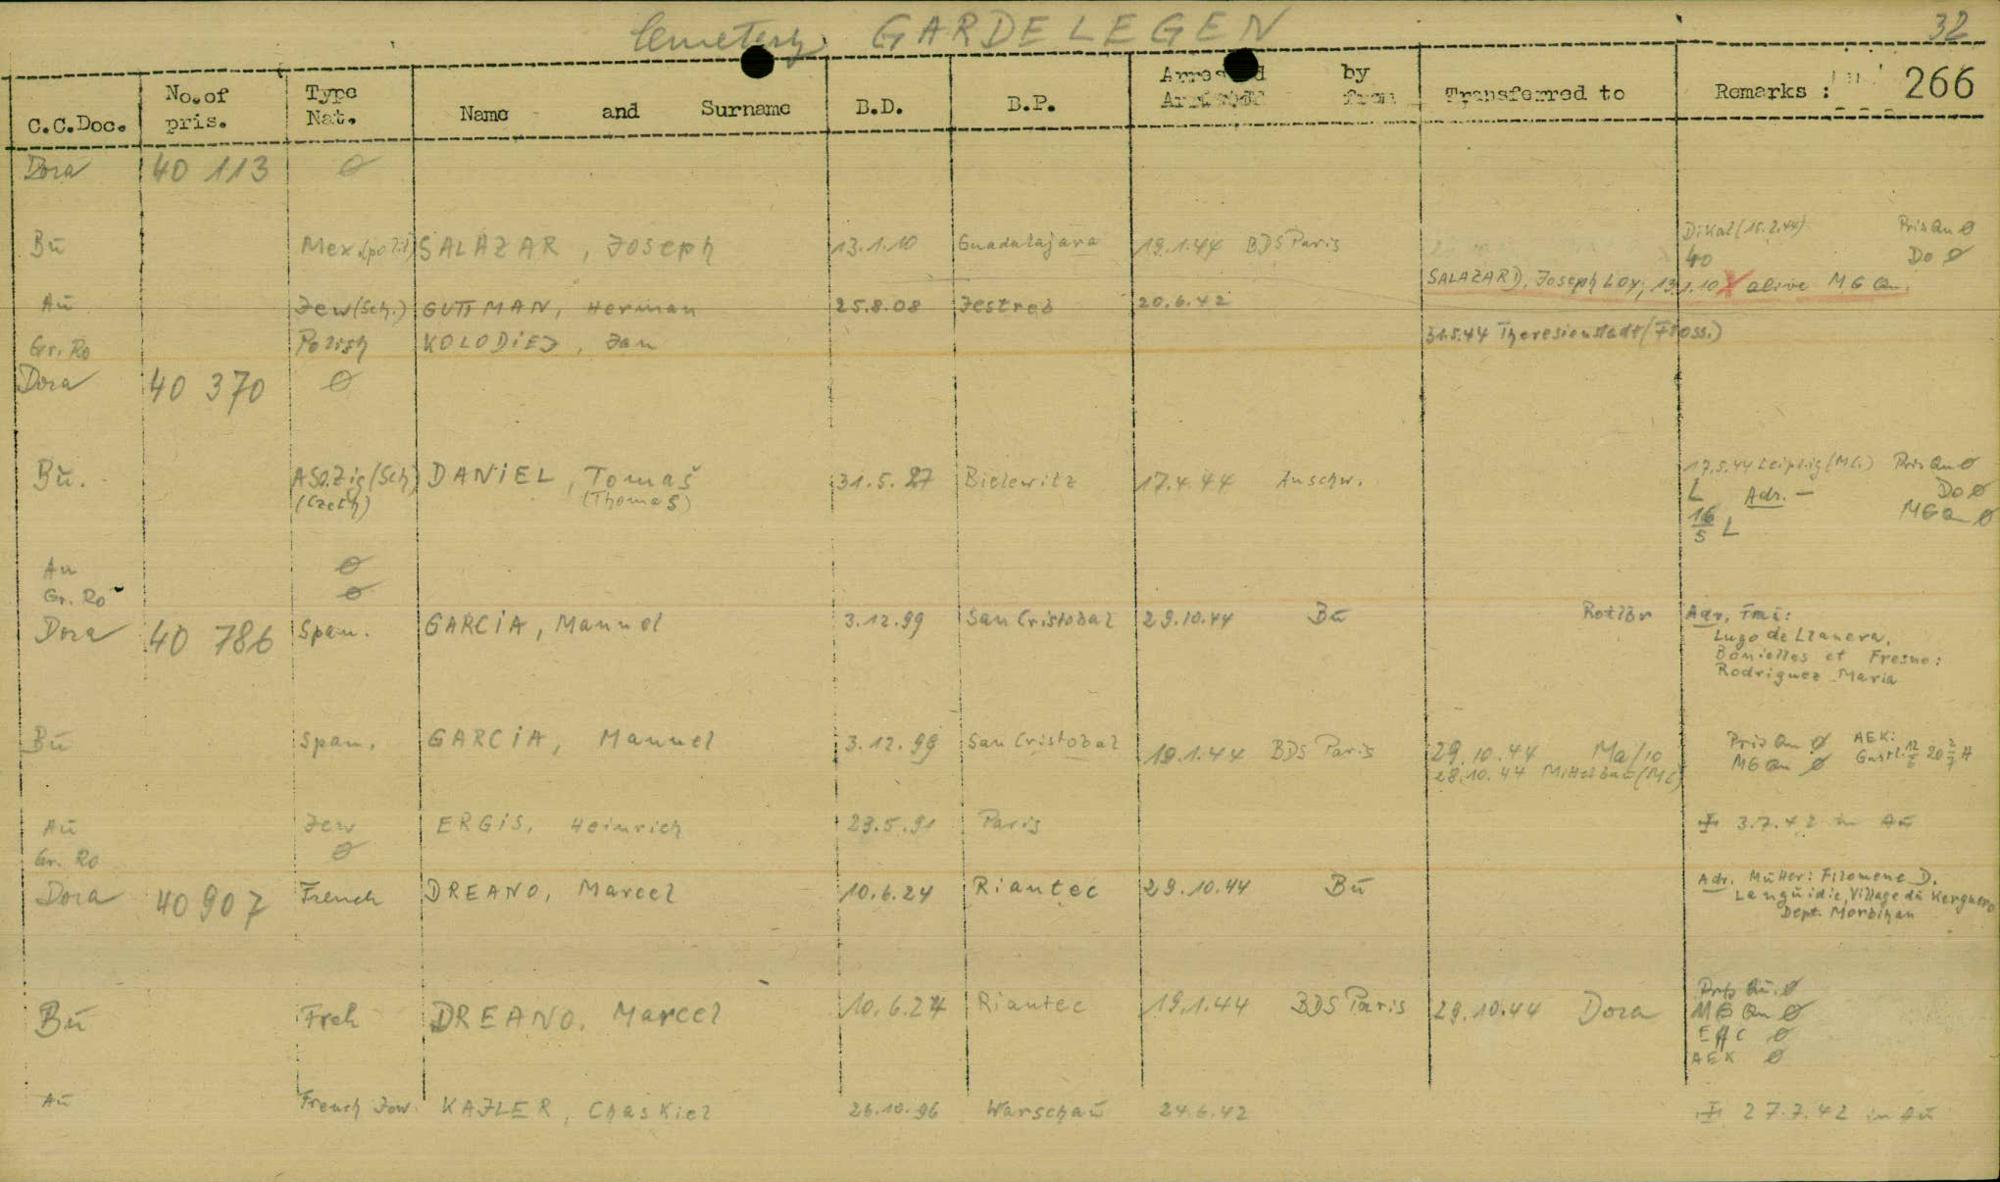 Cemetery GARDELEGEN 32
C.C.Doc. No.of pris. Type Nat. Name and Surname B.D. B.P. Arrested by from Transferred to Remarks : 266
Dora 40 113 ø
Bu Mex.(polit) SALAZAR, Joseph 13.1.10 Guadalajara 19.1.44 BDS Paris Dikal (15.2.44) Pris Qu ø
40 Do ø
SALAZARD, Joseph Loy, 13.1.10 X alive MG Qu.
Au Jew (Sch.) GUTTMAN, Herman 25.8.08 Jestreb 20.6.42
Gr. Ro Polish KOLODIEJ, Jan 31.5.44 Theresienstadt (Floss.)
Dora 40 370 ø
Bu. ASO.Zig (Sch) DANIEL, Tomaš 31.5.27 Bielewitz 17.4.44 Auschw. 17.5.44 Leipzig (ML) Pris Qu ø
(Czech) (Thomas) L Adr. — Do ø
16/5 L MG Qu ø
Au ø
Gr. Ro ø
Dora 40 786 Span. GARCIA, Manuel 3.12.99 San Cristobal 29.10.44 Bu Rotlbr Adr. Frau:
Lugo de Llanera.
Bonielles et Fresno:
Rodriguez Maria
Bu Span. GARCIA, Manuel 3.12.99 San Cristobal 19.1.44 BDS Paris 29.10.44 Ma/10 Pris Qu ø AEK:
28.10.44 Mittelbau (ML) MG Qu ø
Au Jew ERGIS, Heinrich 23.5.91 Paris 3.7.42 in Au
Gr. Ro ø
Dora 40 907 French DREANO, Marcel 10.6.24 Riantec 29.10.44 Bu Adr. Mutter: Filomene D.
Languidic, Village du Kerguero
Dept. Morbihan
Bu Freh DREANO, Marcel 10.6.24 Riantec 19.1.44 BDS Paris 29.10.44 Dora Pris Qu. ø
MG Qu ø
Eff C ø
AEK ø
Au French Jew. KAJLER, Chaskiel 26.10.96 Warschau 24.6.42 27.7.42 in Au